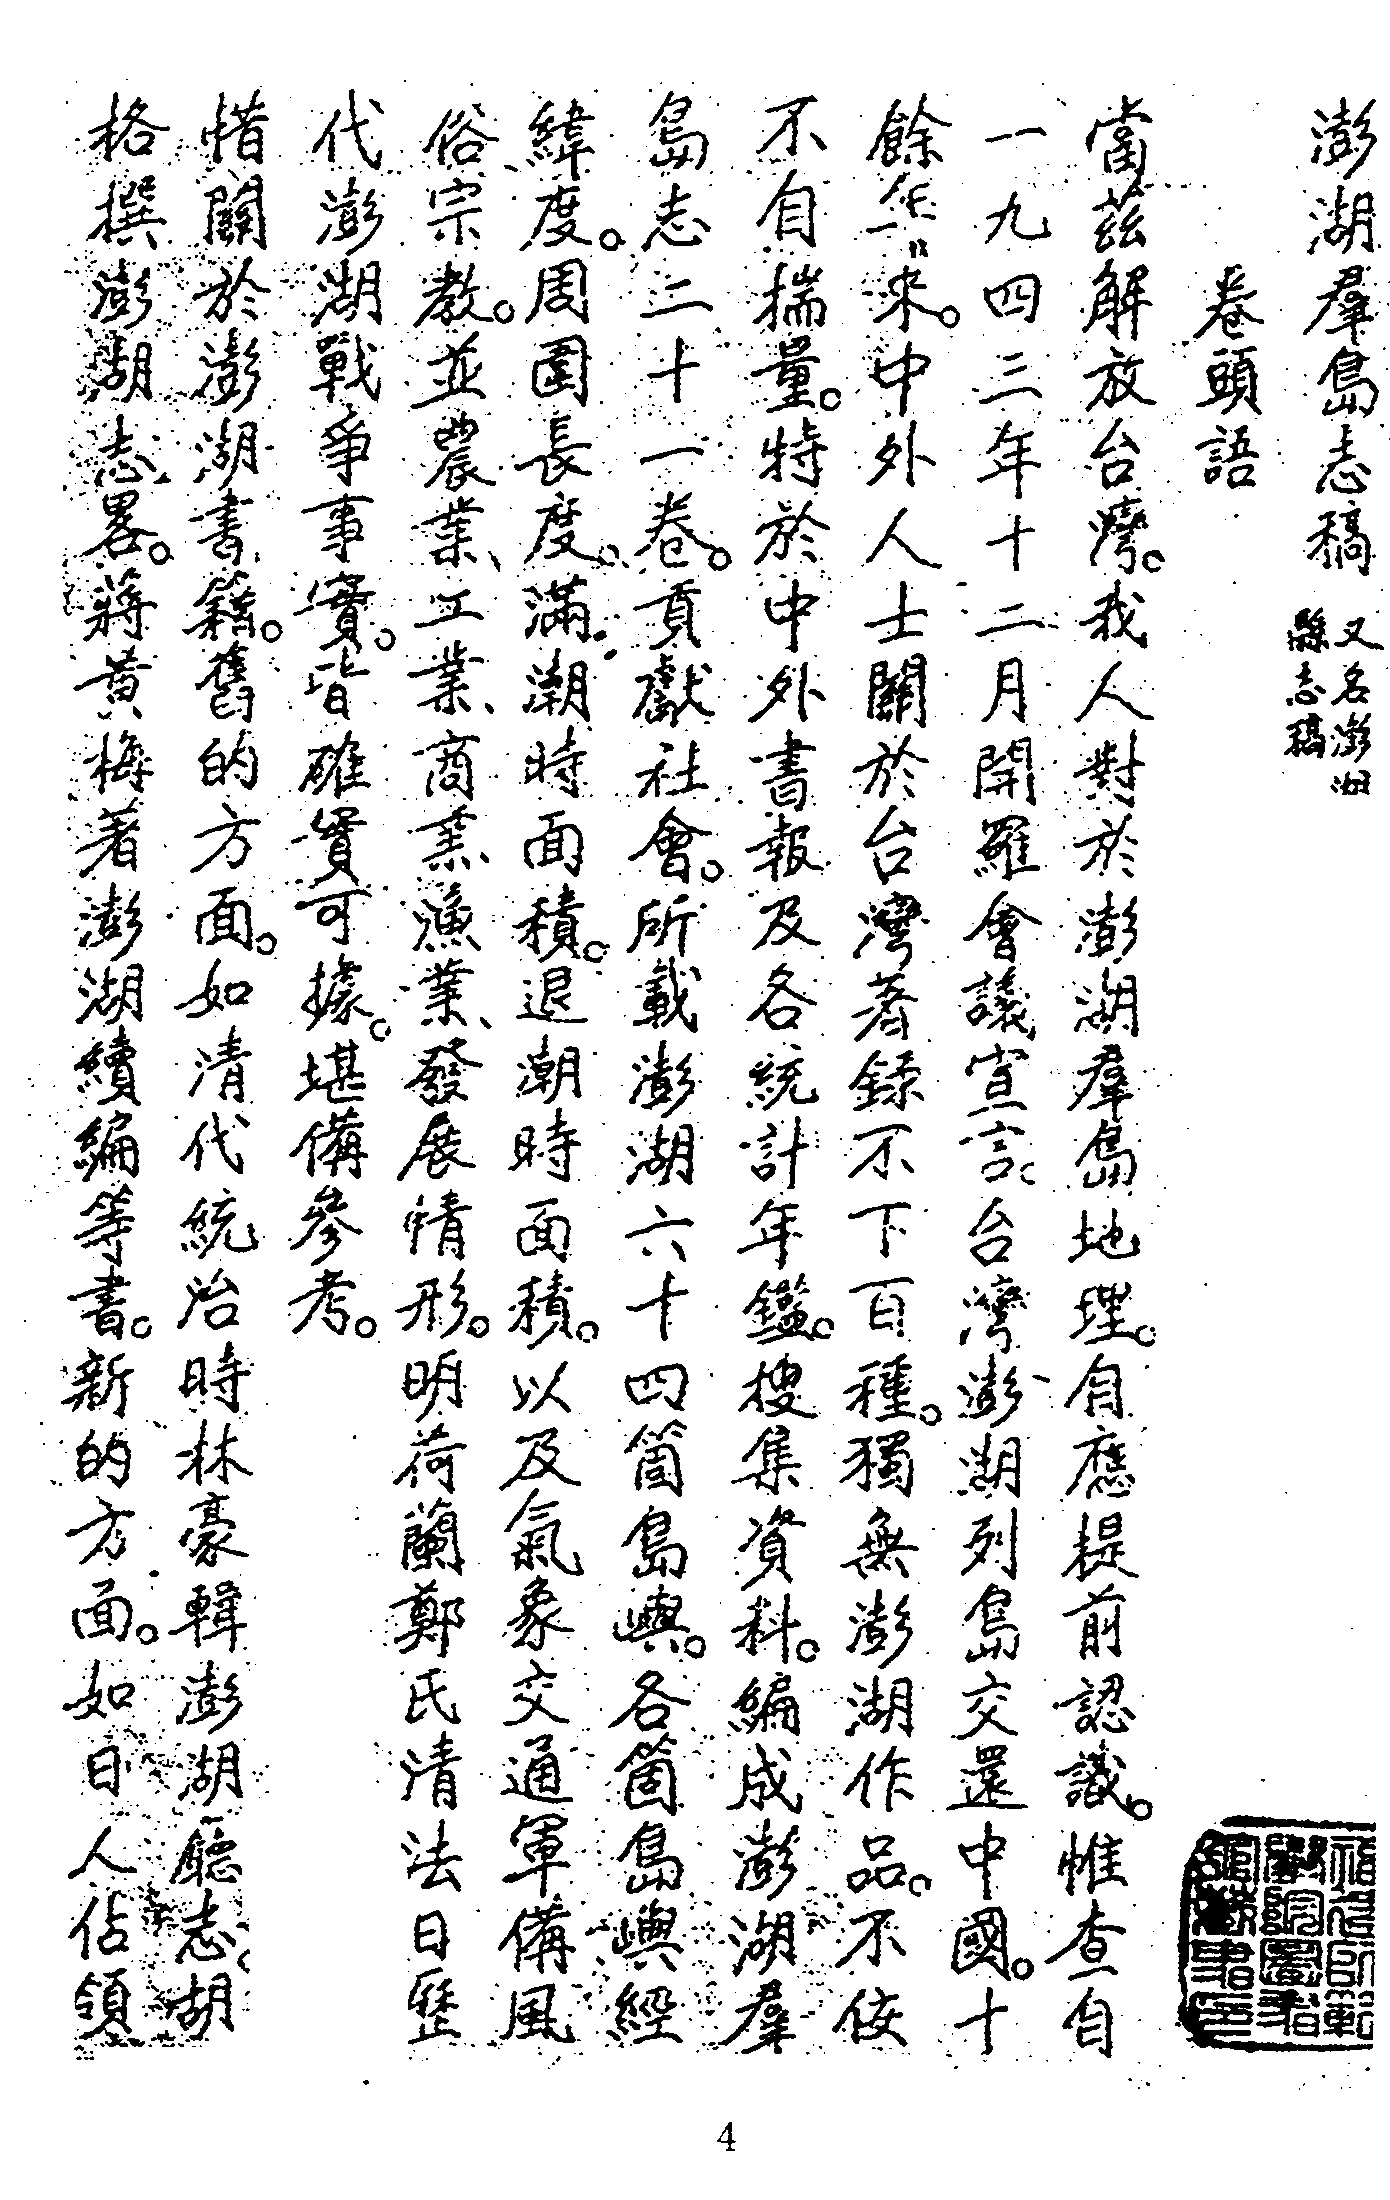 澎湖羣島志稿 又名澎湖縣志稿
卷頭語
當茲解放台灣。我人對於澎湖羣島地理。自應提前認識。惟查自
一九四三年十二月開羅會議宣言、台灣澎湖列島交還中國。十
餘年來。中外人士關於台灣著錄不下百種。獨無澎湖作品。不佞
不自揣量。特於中外書報及各統計年鑑。搜集資料。編成澎湖羣
島志二十一卷。貢獻社會。所載澎湖六十四箇島嶼。各箇島嶼經
緯度。周圍長度。滿潮時面積。退潮時面積。以及氣象交通軍備風
俗宗教。並農業、工業、商業、漁業、發展情形。明荷蘭鄭氏清法日歷
代澎湖戰爭事實。皆確實可據。堪備參考。
惜關於澎湖書籍。舊的方面。如清代統治時林豪輯澎湖廳志、胡
格撰澎湖志畧。蔣黄梅著澎湖續編等書。新的方面。如日人佔領
福建師範學院圖書館藏書印
4